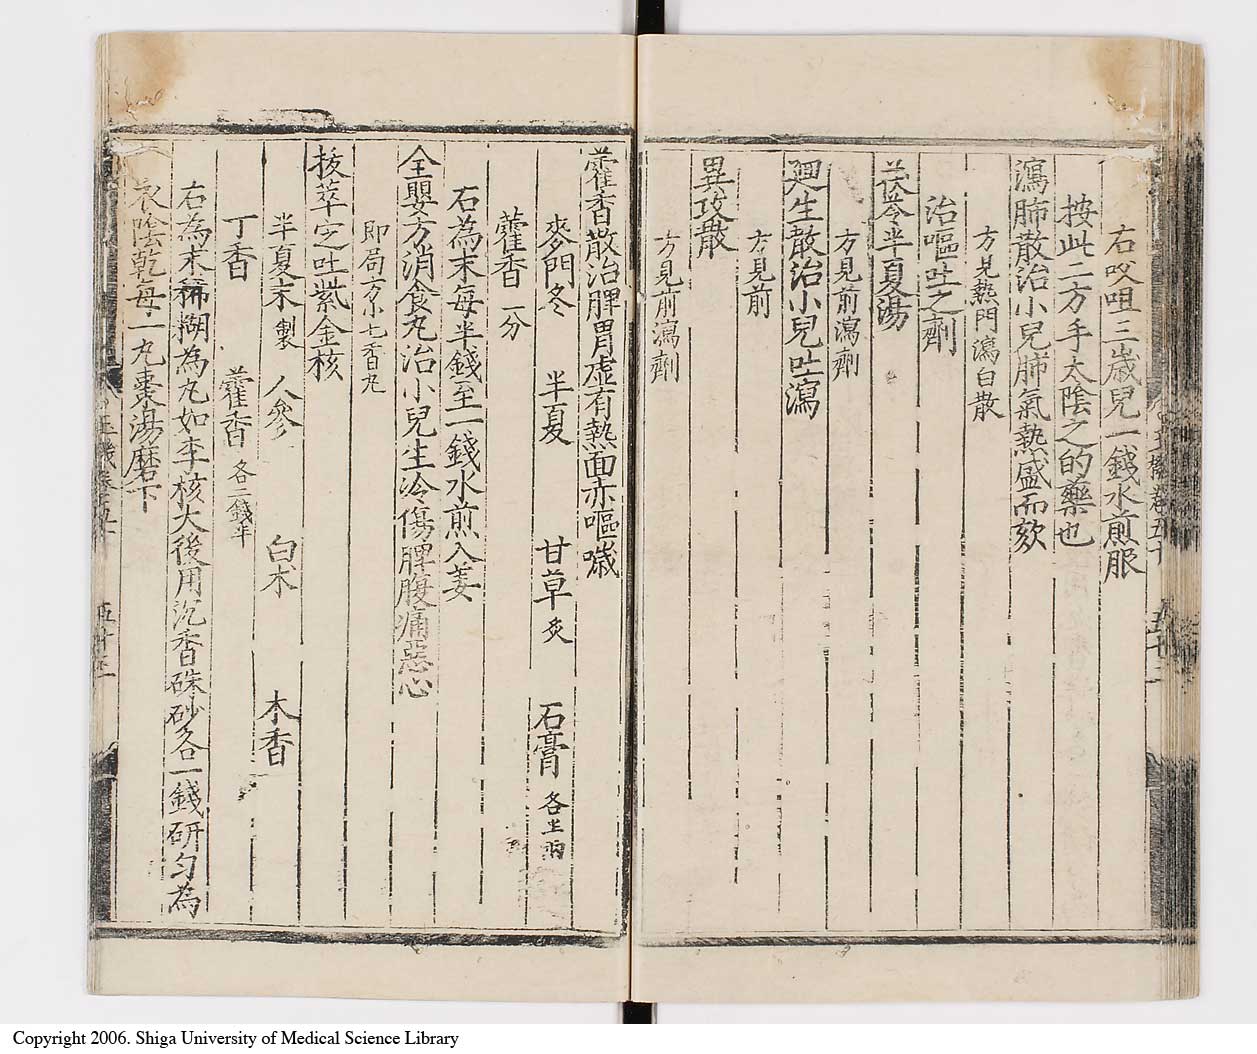 右㕮咀三歳兒一錢水煎服
按此二方手太陰之的藥也
瀉肺散治小兒肺氣熱盛而欬
方見熱門瀉白散
治嘔吐之劑
茯苓半夏湯
方見前瀉劑
廻生散治小兒吐瀉
方見前
異攻散
方見前瀉劑
藿香散治脾胃虛有熱面赤嘔噦
麥門冬 半夏 甘草炙 石膏各半兩
藿香一分
右為末每半錢至一錢水煎入姜
全嬰方消食丸治小兒生冷傷脾腹痛惡心
即局方小七香丸
拔萃定吐紫金核
半夏末製 人參 白朮 木香
丁香 藿香各二錢半
右為末稀糊為丸如李核大後用沉香硃砂各一錢研勻為
衣陰乾每一丸棗湯磨下
Copyright 2006. Shiga University of Medical Science Library